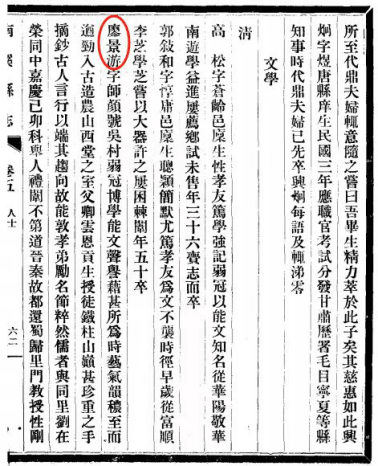 所至代鼎夫婦輒意隨之嘗曰吾畢生精力萃於此子矣其慈惠如此興
炯字煜唐縣庠生民國三年應職官考試分發甘肅歷著毛目寧夏等縣
知事時代鼎夫婦已先卒興炯每語及輒涕零
文學
清
高 松字蒼齡邑廩生性孝友篤學強記弱冠以能文知名從華陽敬華
南遊學益進屢薦鄉試未售年三十六賫志而卒
郭敍和字惇庸邑廩生聰穎簡默尤篤孝友為文不襲時徑早歲從富順
李芝學芝嘗以大器許之屢困棘闈年五十卒
廖景游字師頗號吳村弱冠博學能文聲譽藉甚所為時藝氣韻穠至而
遒勁入古造農山西堂之室父卿雲恩貢生授徒鐵柱山巔甚珍重之手
摘鈔古人言行以端其趨向故能敦孝弟勵名節粹然儒者與同里劉在
榮同中嘉慶己卯科舉人禮闈不第道晉秦故都還蜀歸里門教授性剛
南溪縣志 卷五 人士 六二